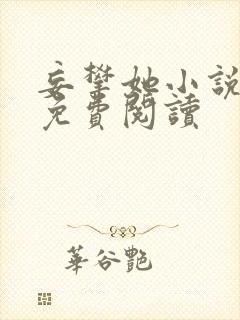 妄攀她小說
免費閱讀
華谷艷